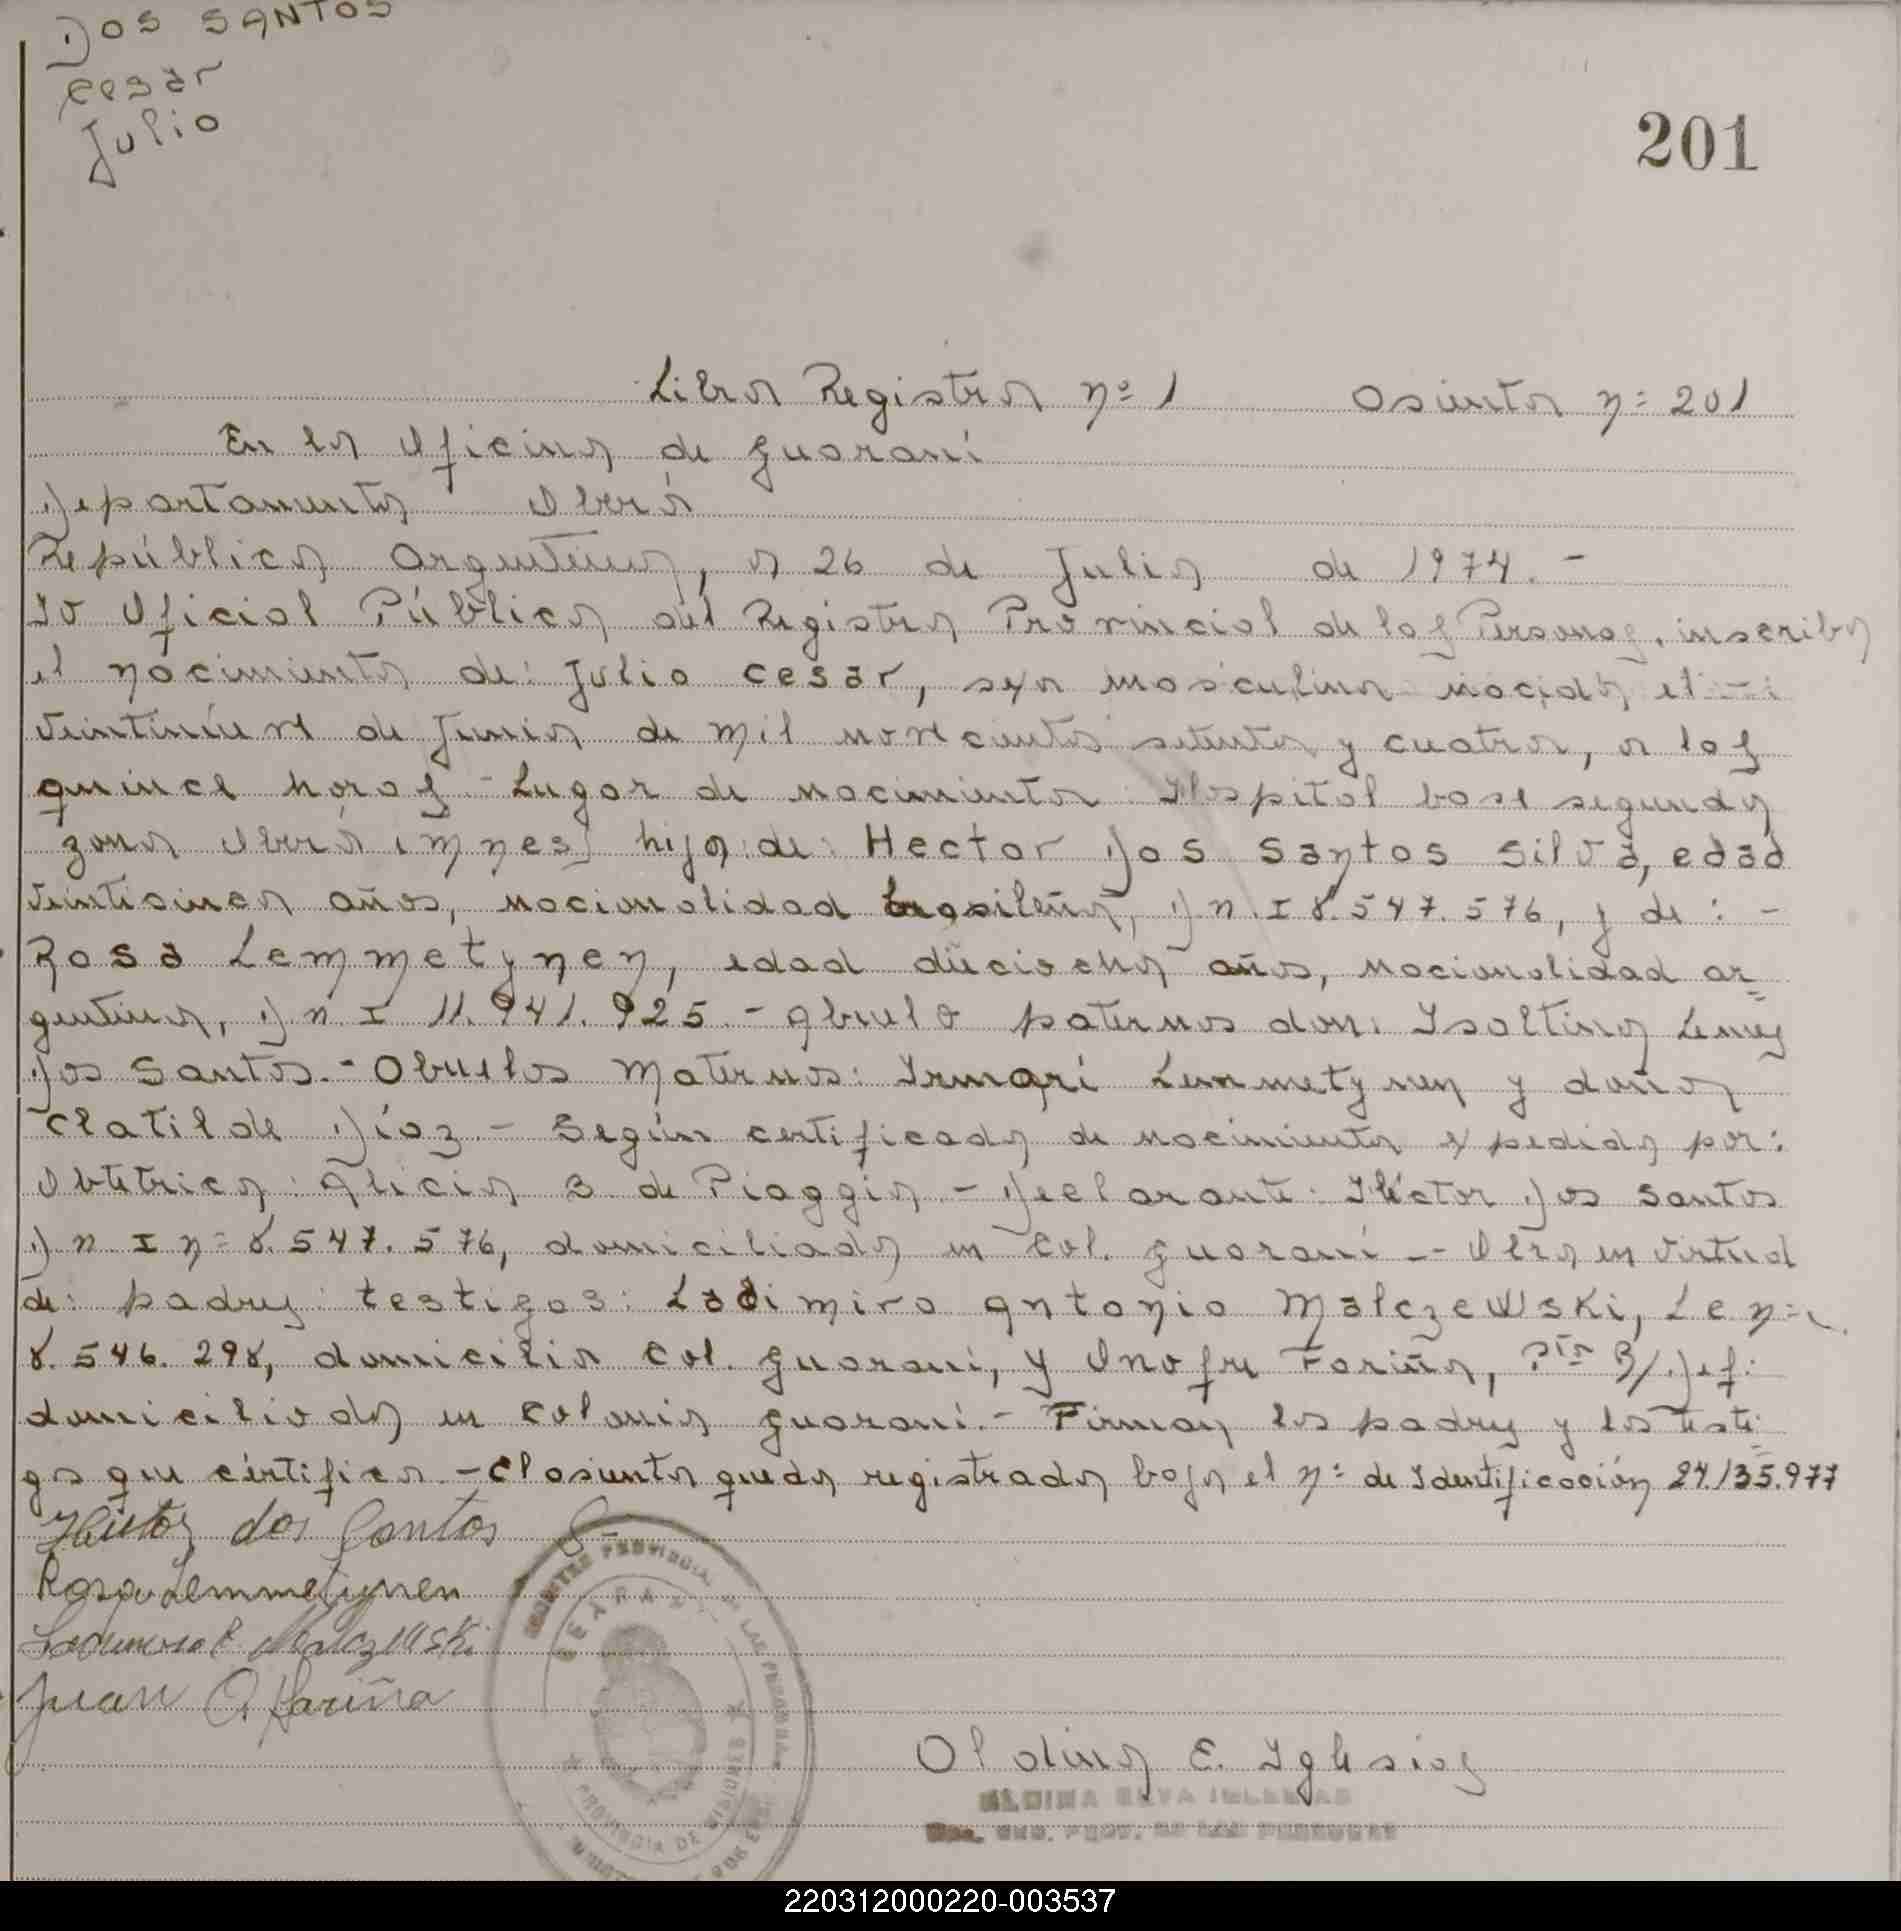 DOS SANTOS
Cesar
Julio
201
Libro Registro nº 1 Asiento nº 201
En la Oficina de Guaraní
Departamento Oberá
República Argentina, a 26 de Julio de 1974.-
Yo Oficial Público del Registro Provincial de las Personas, inscribo
el nacimiento de: Julio Cesar, sexo masculino nacido el
veintinueve de Junio de mil novecientos setenta y cuatro, a las
quince horas - Lugar de nacimiento: Hospital base segunda
zona Oberá Mnes hijo de: Hector Dos Santos Silva, edad
veintisinco años, nacionalidad brasileña, D.N.I 8.547.576, y de: -
Rosa Lemmetynen, edad dieciocho años, nacionalidad ar
gentina, D.N.I 11.941.925.- Abuelo paterno don: Isoltino Lemes
Dos Santos.- Abuelos Maternos: Irmari Lemmetynen y doña
Clatilde Díaz.- Según certificado de nacimiento expedido por:
Obtetrica: Alicia B. de Piaggio - Declarante: Héctor Dos Santos
D N I nº 8.547.576, domiciliado en Col. Guaraní.- Obra en virtud
de: padres testigos: Ladimiro Antonio Malczewski, L.e. nº
8.546.298, domicilio Col. Guaraní, y Onofre Fariña, Pto B/.Jef.
domiciliado en Colonia Guaraní.- Firman los padres y los testi
gos que certifico.- El asiento queda registrado bajo el nº de Identificación 24.135.977
Héctor dos Santos S-
Rosa Lemmetynen
Malczewski
Juan O. Fariña
GUARANI
PROVINCIA DE MISIONES
Aldina E. Iglesias
ELDINA IGLESIAS
REG. PROV. DE LAS PERSONAS
220312000220-003537